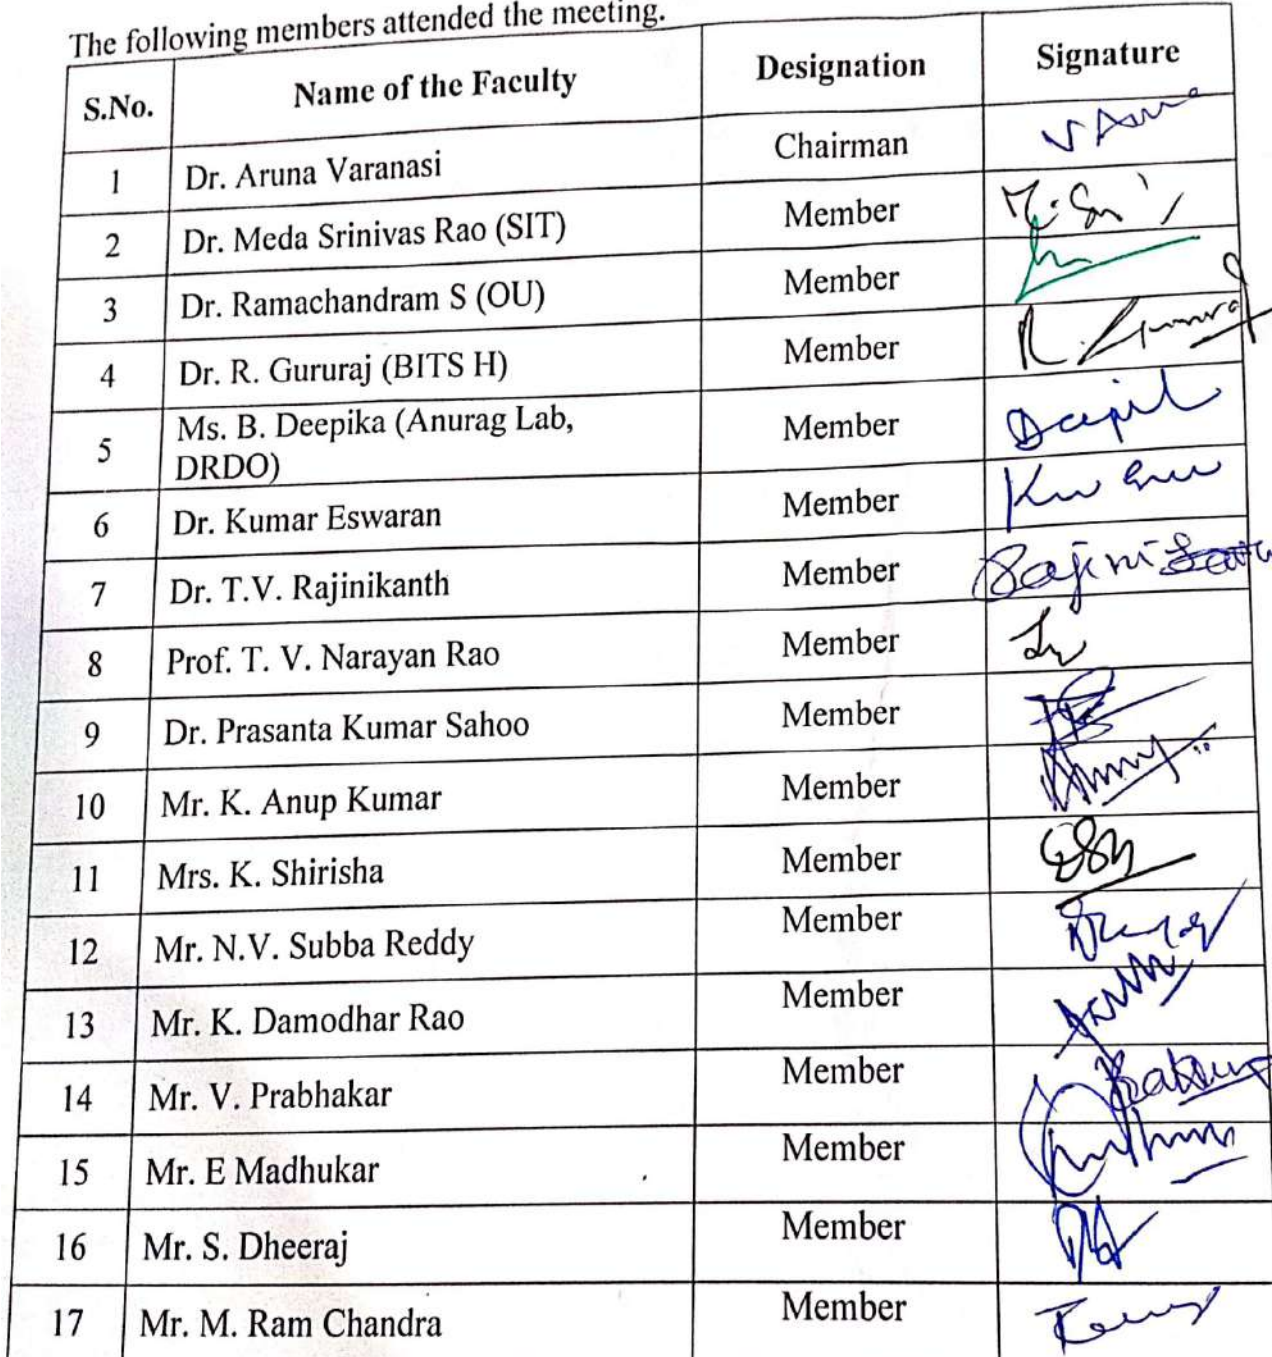 The following members attended the meeting.
S.No. Name of the Faculty Designation Signature
1 Dr. Aruna Varanasi Chairman
2 Dr. Meda Srinivas Rao (SIT) Member
3 Dr. Ramachandram S (OU) Member
4 Dr. R. Gururaj (BITS H) Member
5 Ms. B. Deepika (Anurag Lab, Member
DRDO)
6 Dr. Kumar Eswaran Member
7 Dr. T.V. Rajinikanth Member
8 Prof. T. V. Narayan Rao Member
9 Dr. Prasanta Kumar Sahoo Member
10 Mr. K. Anup Kumar Member
11 Mrs. K. Shirisha Member
12 Mr. N.V. Subba Reddy Member
13 Mr. K. Damodhar Rao Member
14 Mr. V. Prabhakar Member
15 Mr. E Madhukar Member
16 Mr. S. Dheeraj Member
17 Mr. M. Ram Chandra Member